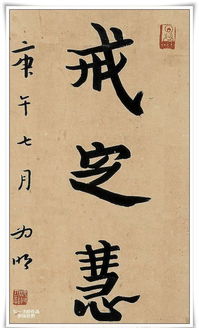 戒定慧
庚午七月